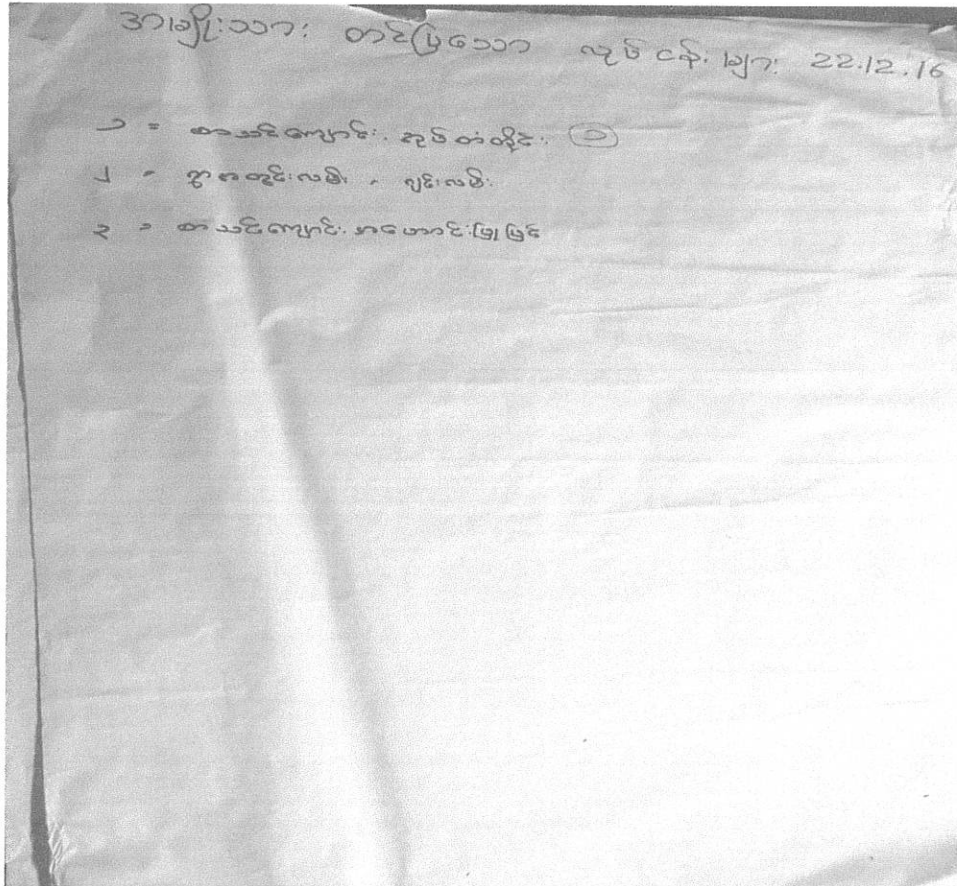 အမျိုးသား တင်ပြသော လုပ်ငန်းများ 22.12.16
၁ = စာသင်ကျောင်း
၂ = ရွာတွင်းလမ်း
၃ = စာသင်ကျောင်း အဟောင်းပြုပြင်